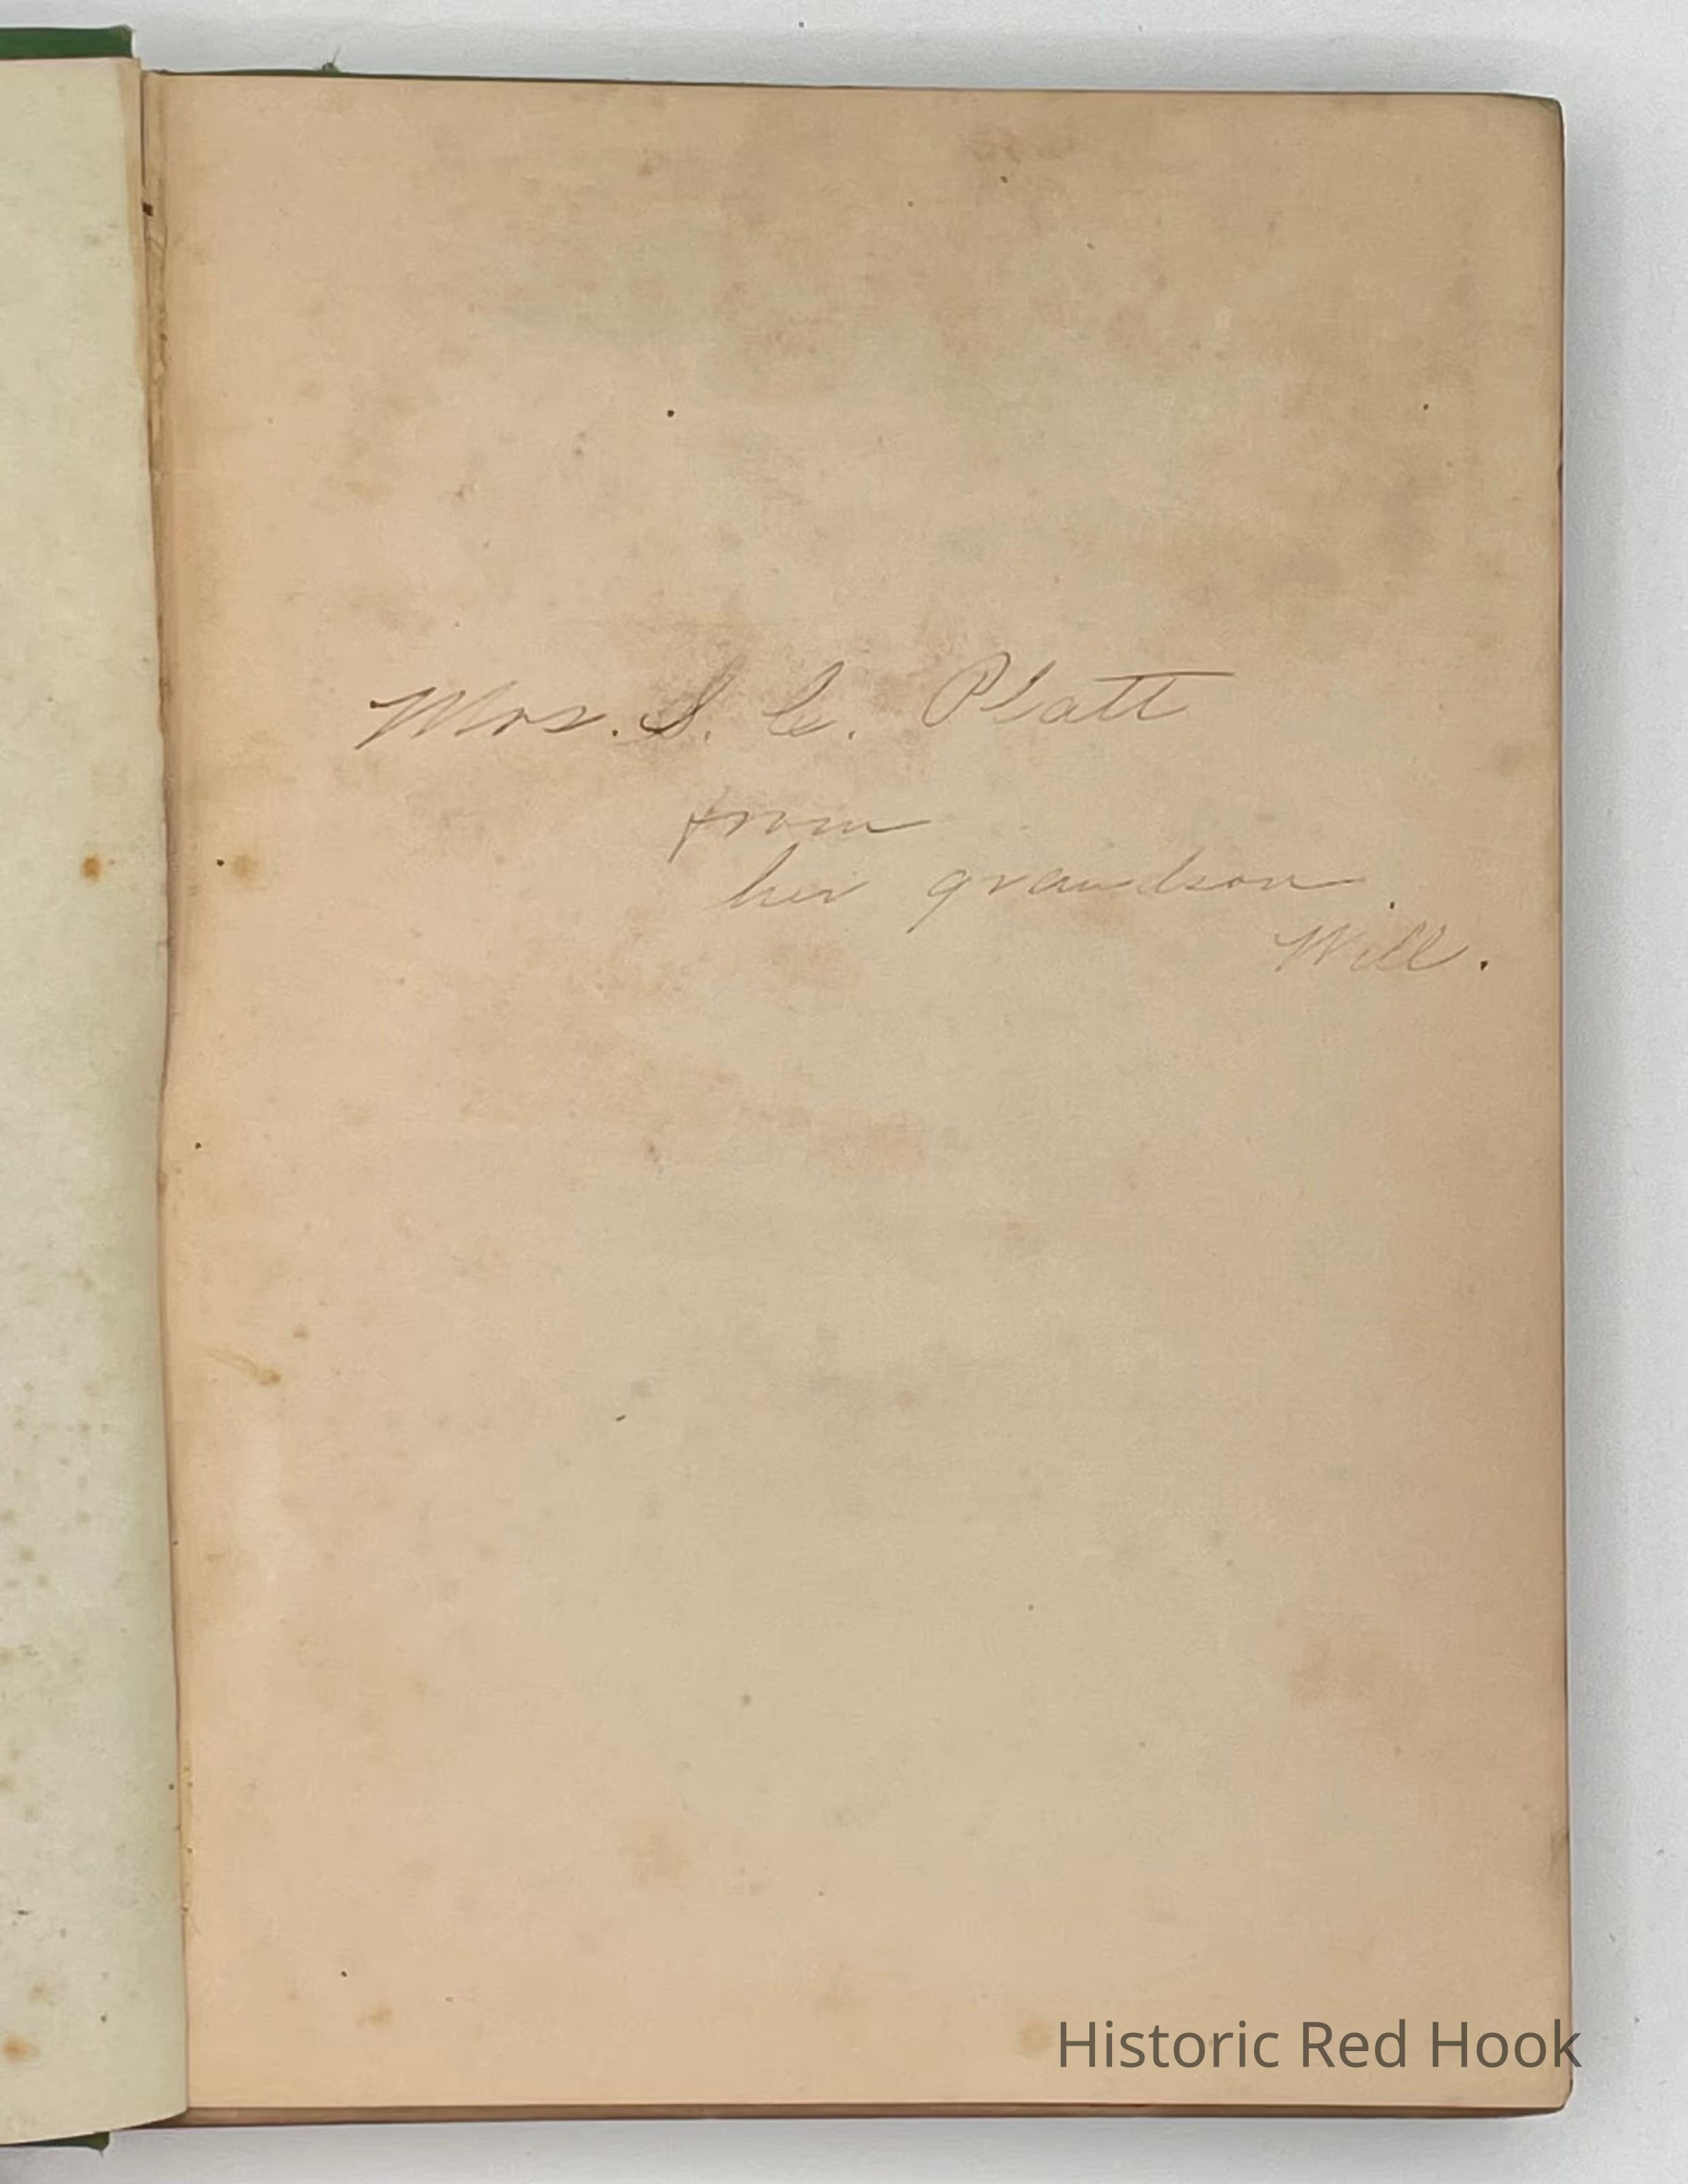 Mrs. S. C. Platt
from
her grandson.
Will.
Historic Red Hook